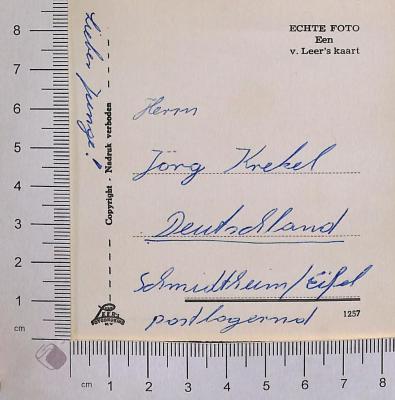 ECHTE FOTO
Een
v. Leer's kaart
Lieber Junge!
Copyright - Nadruk verboden
Herrn
Jörg Krekel
Deutschland
Schmidtheim/Eifel
postlagernd
1257
8
7
6
5
4
3
2
1
cm
cm 1 2 3 4 5 6 7 8